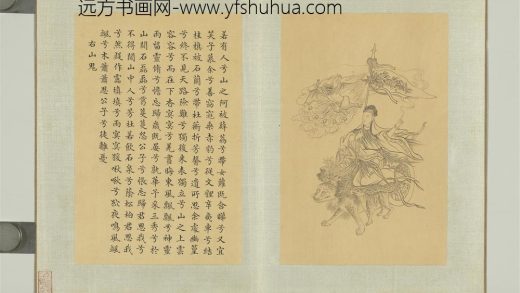 远方书画网-www.yfshuhua.com
若有人兮山之阿被薜荔兮帶女蘿既含睇兮又宜
笑子慕余兮善窈窕乘赤豹兮從文貍辛夷車兮結
桂旗被石蘭兮帶杜蘅折芳馨兮遺所思余處幽篁
兮終不見天路險難兮獨後來表獨立兮山之上雲
容容兮而在下杳冥冥兮羌晝晦東風飄飄兮神靈
雨留靈脩兮憺忘歸歲既晏兮孰華予采三秀兮於
山間石磊磊兮葛蔓蔓怨公子兮悵忘歸君思我兮
不得閒山中人兮芳杜若飲石泉兮蔭松柏君思我
兮然疑作靁填填兮雨冥冥猨啾啾兮狖夜鳴風颯
颯兮木蕭蕭思公子兮徒離憂
右山鬼